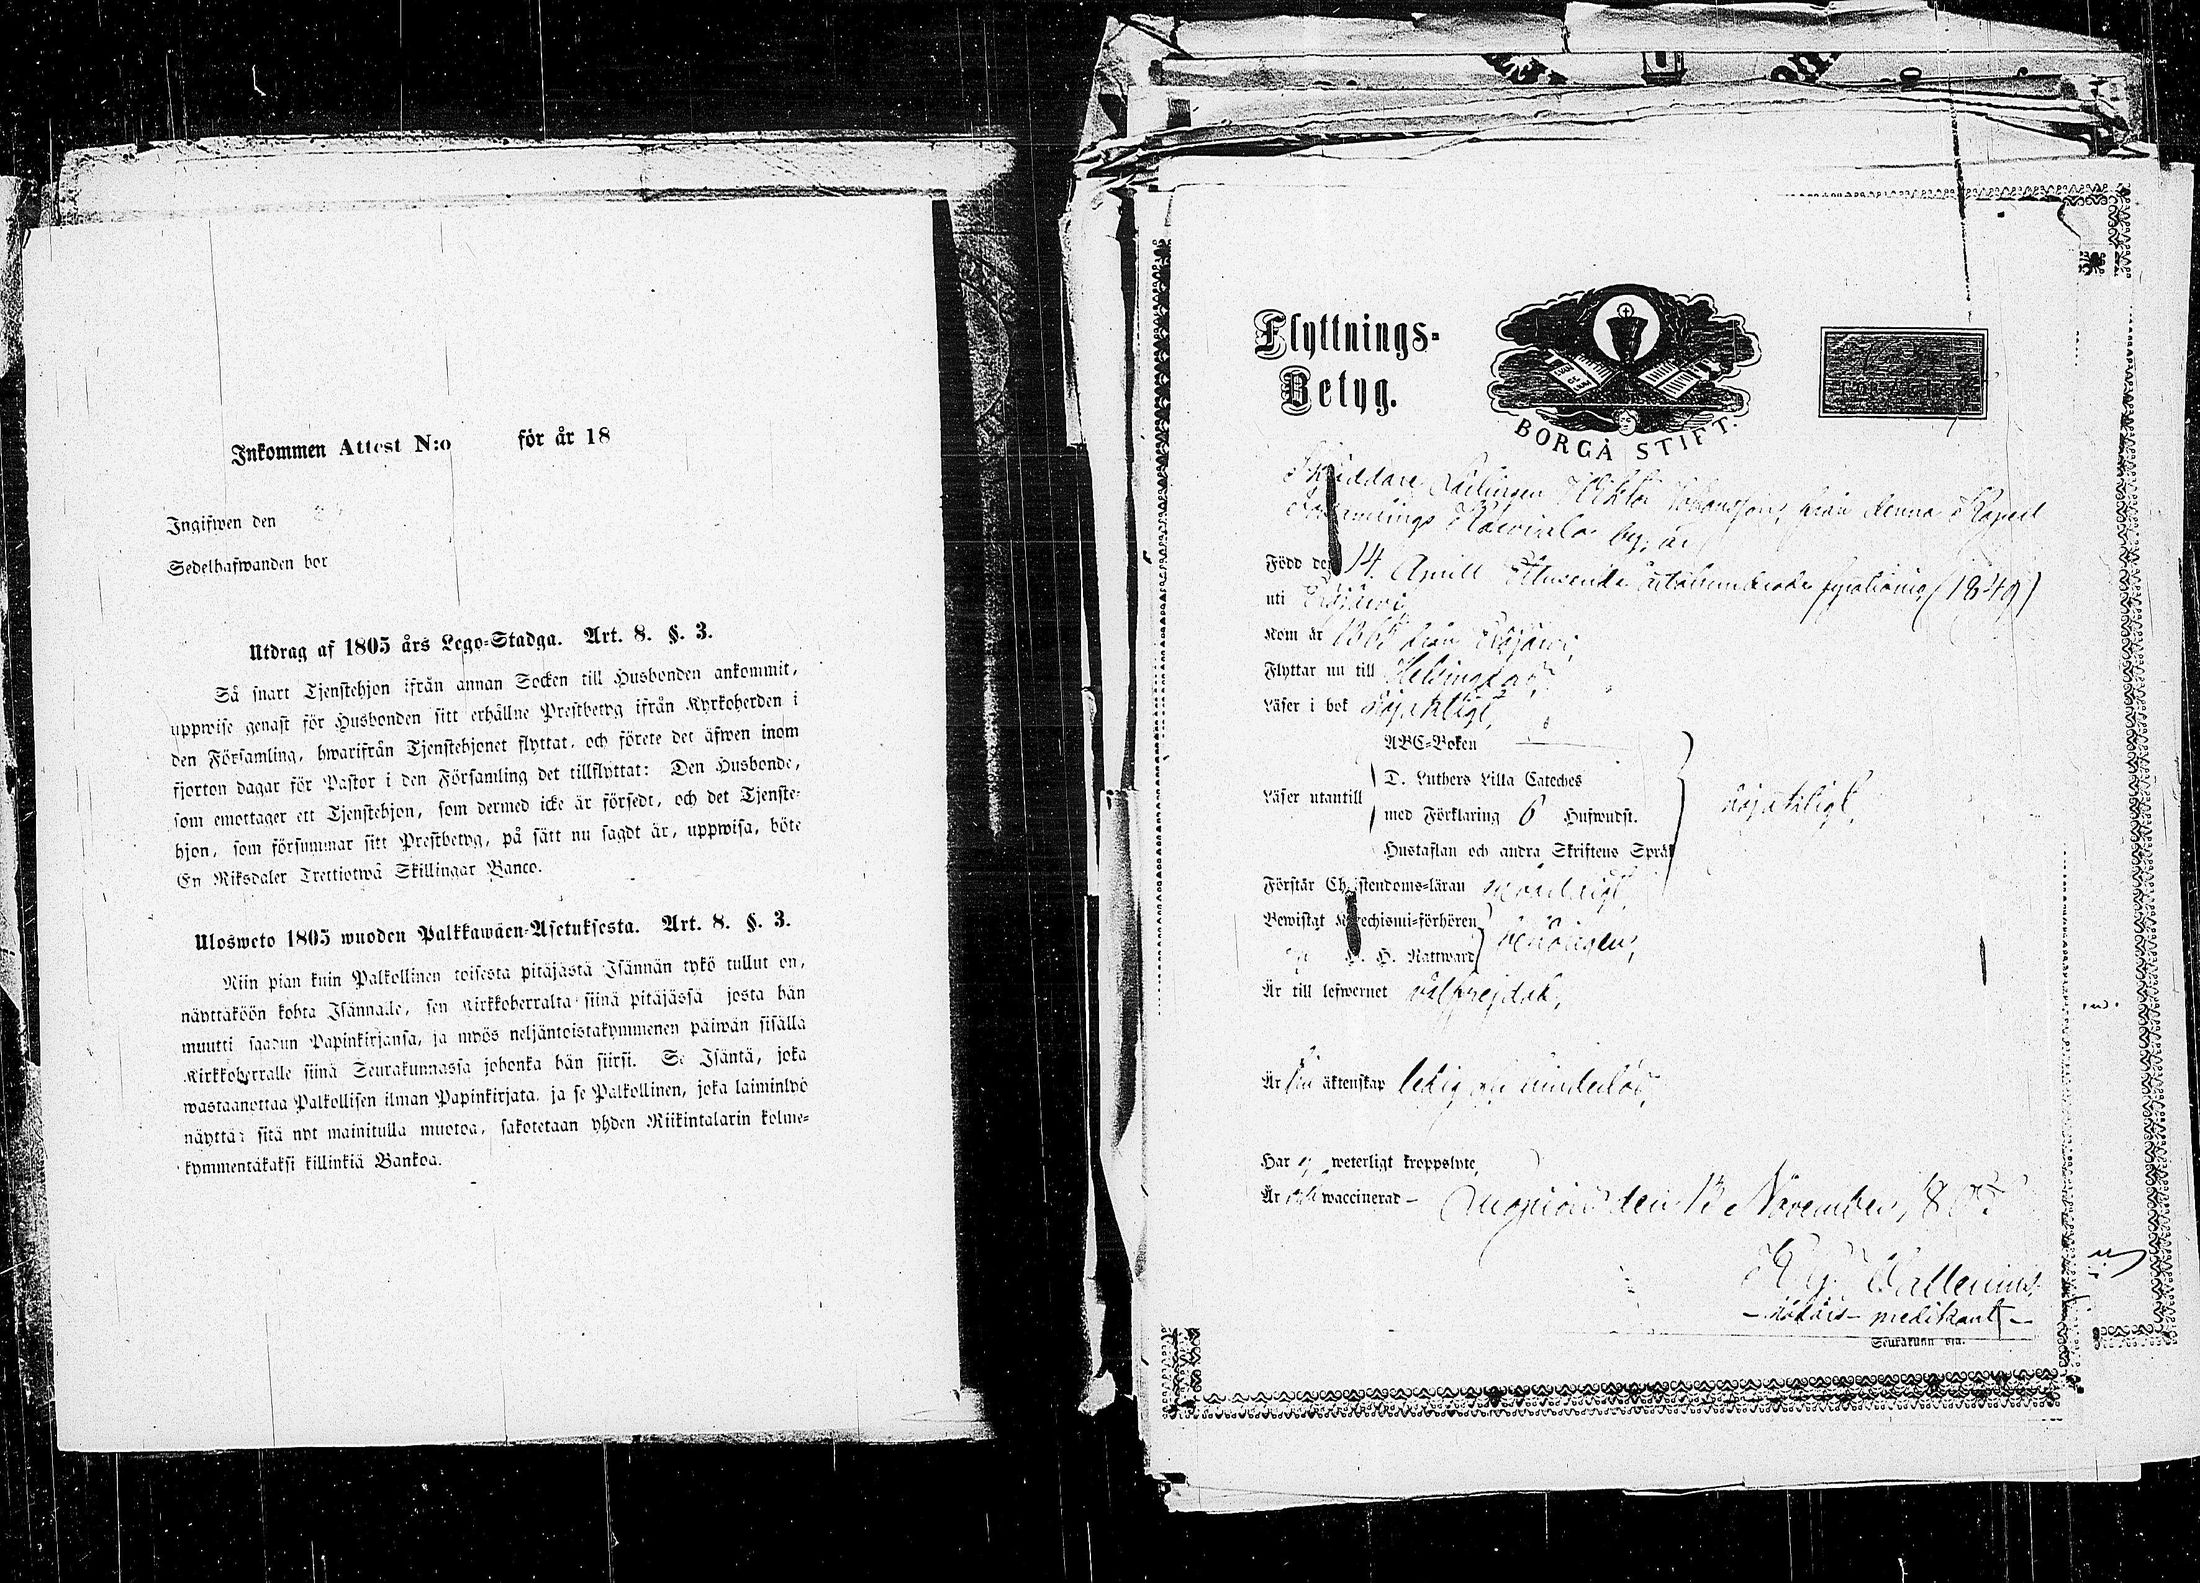 Inkommen Attest N:o för år 18
Ingifwen den
Sedelhafwanden bor
Utdrag af 1805 års Lego-Stadga. Art. 8. §. 3.
Så snart Tjenstehjon ifrån annan Socken till Husbonden ankommit,
uppwise genast för Husbonden sitt erhållne Prestbetyg ifrån Kyrkoherden i
den Församling, hwarifrån Tjenstehjonet flyttat, och förete det äfwen inom
fjorton dagar för Pastor i den Församling det tillflyttat: Den Husbonde,
som emottager ett Tjenstehjon, som dermed icke är försedt, och det Tjenste-
hjon, som försummar sitt Prestbetyg, på sätt nu sagdt är, uppwisa, böte
En Riksdaler Trettiotwå Skillingar Banco.
Ulosweto 1805 wuoden Palkkawäen-Asetuksesta. Art. 8. §. 3.
Niin pian kuin Palkollinen toisesta pitäjästä Isännän tykö tullut on,
näyttäköön kohta Isännälle, sen Kirkkoherralta siinä pitäjässä josta hän
muutti saadun Papinkirjansa, ja myös neljäntoistakymmenen päiwän sisällä
Kirkkoherralle siinä Seurakunnassa johonka hän siirsi. Se Isäntä, joka
wastaanottaa Palkollisen ilman Papinkirjata, ja se Palkollinen, joka laiminlyö
näyttää sitä nyt mainitulla muotoa, sakotetaan yhden Riikintalarin kolme-
kymmentäkaksi killinkiä Bankoa.
Flyttnings-
Betyg.
BORGÅ STIFT.
Skräddare Lärlingen Viktor Johansson, från denna Kapell
Församlings by, är
Född den 14 April Ettusende åttahundrade fyrationio (1849)
uti Eräjärwi,
Kom år från Eräjärwi,
Flyttar nu till Helsingfors,
Läser i bok nöjaktligt,
ABC-Boken
Läser utantill
D. Luthers Lilla Cateches
med Förklaring 6 Hufwudst.
Hustaflan och andra Skriftens Språk
nöjaktligt,
Förstår Christendoms-läran
Bewistat Katechismi-förhören
H. H. Nattward
Är till lefwernet wälfrejdad,
Är till äktenskap ledig och hinderlös,
Har ej weterligt kroppslyte,
Är waccinerad - den 13 November, 18
Wallenius
predikant
Seurakunn